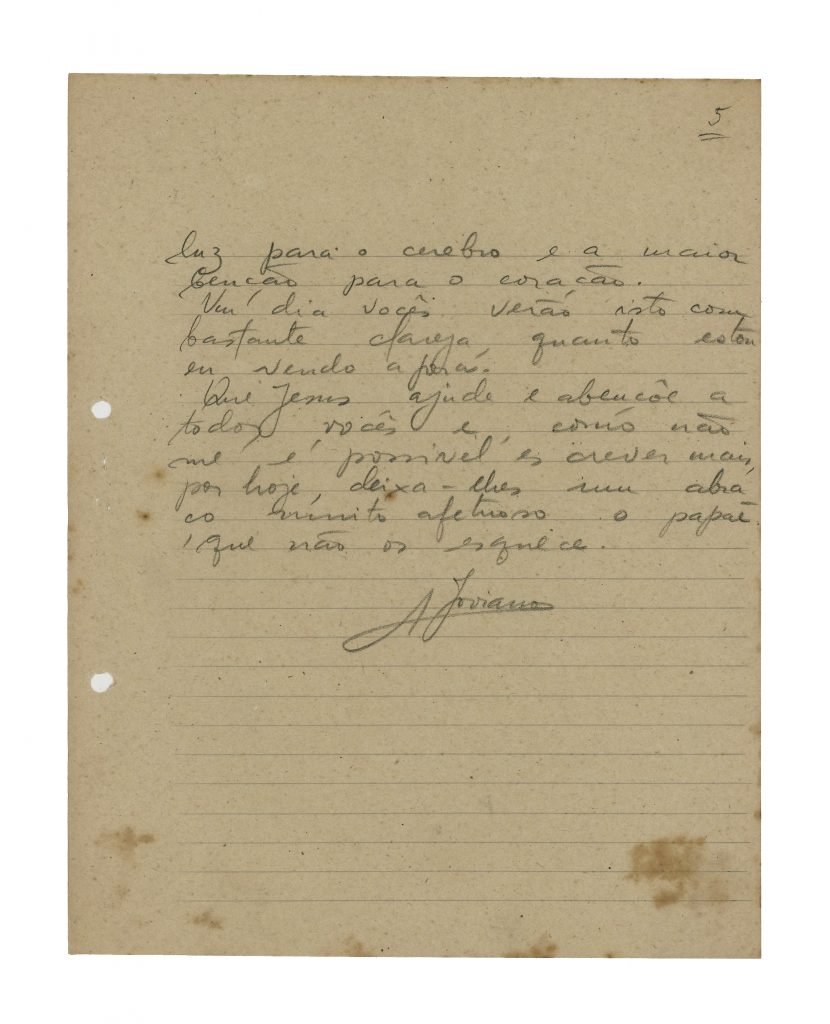 5
luz para o cerebro e a maior
benção para o coração.
Um dia vocês verão isto com
bastante clareza quanto estou
eu vendo agora.
Que Jesus ajude e abençôe a
todos vocês e como não
me é possivel es crever mais,
por hoje, deixa-lhes um abra
ço muito afetuoso o papae
que não os esquece.
A Joviano